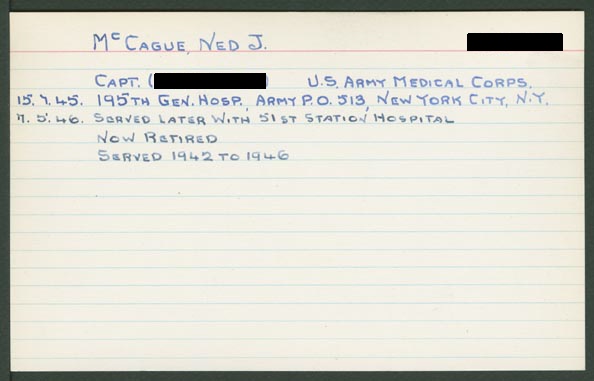 McCague, Ned J.
Capt. ( ) U.S. Army Medical Corps.
15.7.45. 195th Gen. Hosp., Army P.O. 513, New York City, N.Y.
7.5.46. Served later with 51st Station Hospital
Now Retired
Served 1942 to 1946